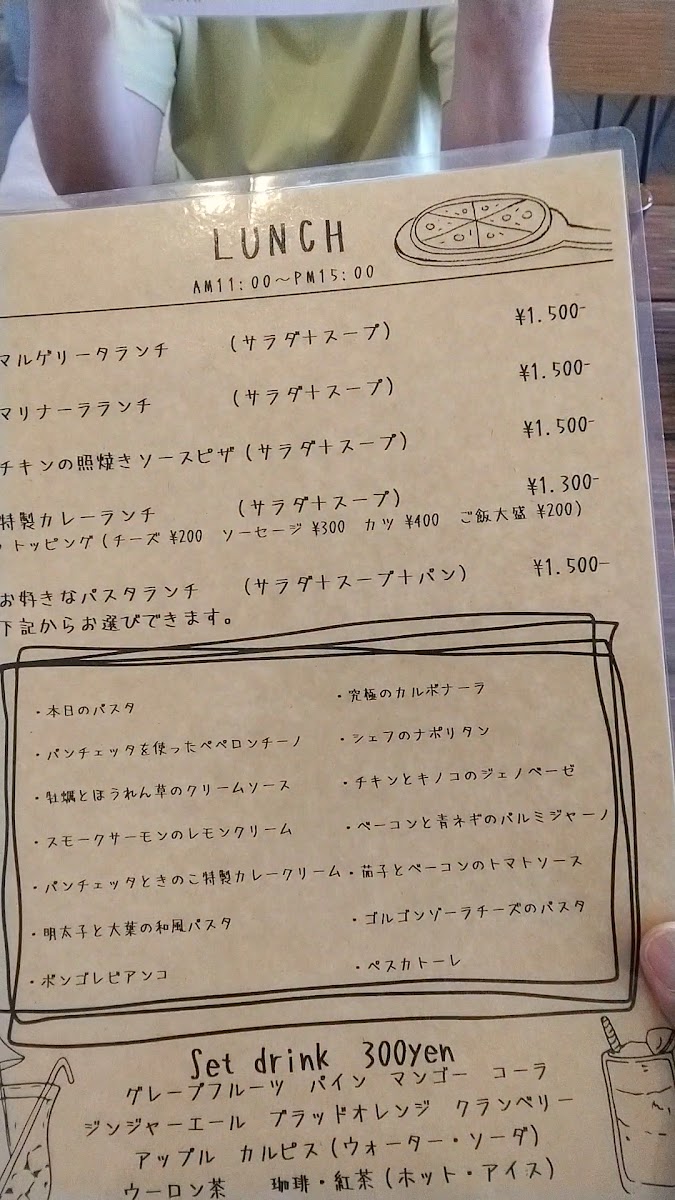 LUNCH
AM11:00〜PM15:00
マルゲリータランチ (サラダ+スープ) ¥1.500-
マリナーラランチ (サラダ+スープ) ¥1.500-
チキンの照焼きソースピザ (サラダ+スープ) ¥1.500-
特製カレーランチ (サラダ+スープ) ¥1.300-
トッピング (チーズ ¥200 ソーセージ ¥300 カツ ¥400 ご飯大盛 ¥200)
お好きなパスタランチ (サラダ+スープ+パン) ¥1.500-
下記からお選びできます。
・本日のパスタ ・究極のカルボナーラ
・パンチェッタを使ったペペロンチーノ ・シェフのナポリタン
・牡蠣とほうれん草のクリームソース ・チキンとキノコのジェノベーゼ
・スモークサーモンのレモンクリーム ・ベーコンと青ネギのパルミジャーノ
・パンチェッタときのこ特製カレークリーム ・茄子とベーコンのトマトソース
・明太子と大葉の和風パスタ ・ゴルゴンゾーラチーズのパスタ
・ボンゴレビアンコ ・ペスカトーレ
Set drink 300yen
グレープフルーツ パイン マンゴー コーラ
ジンジャーエール ブラッドオレンジ クランベリー
アップル カルピス (ウォーター・ソーダ)
ウーロン茶 珈琲・紅茶 (ホット・アイス)